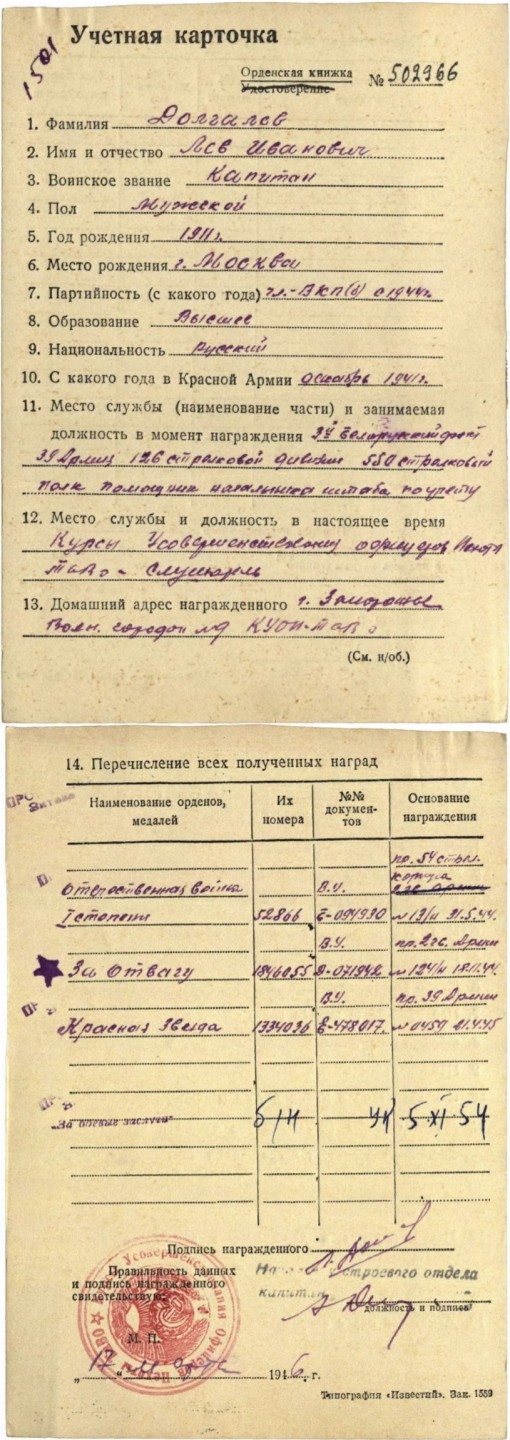 1501
Учетная карточка
Орденская книжка № 502966
Удостоверение
1. Фамилия Долгалев
2. Имя и отчество Лев Иванович
3. Воинское звание Капитан
4. Пол Мужской
5. Год рождения 1911г.
6. Место рождения г. Москва
7. Партийность (с какого года) чл.-ВКП(б) с 1944г.
8. Образование Высшее
9. Национальность Русский
10. С какого года в Красной Армии декабрь 1941г.
11. Место службы (наименование части) и занимаемая
должность в момент награждения 3й Белорусский фронт
39 Армия 126 стрелковой дивизии 550 стрелковый
полк помощник начальника штаба по учету
12. Место службы и должность в настоящее время
Курсы Усовершенствования офицеров Пехоты
ТавВо - слушатель
13. Домашний адрес награжденного г. Запорожье
Воен. городок КУОП-ТавВо
(См. н/об.)
14. Перечисление всех полученных наград
Наименование орденов, медалей
Их номера
№№ документов
Основание награждения
пр. 54 стрел.
корпуса
Отечественная война В.У. 2гв. армии
I степени 52866 Е-094930 №13/н 31.5.44.
В.У. пр. 2гв. Армии
За Отвагу 1846055 №124/н
В.У. пр. 39 Армии
Красная Звезда 1334036 Е-478017. №0459 21.4.45
„За боевые заслуги“ б/н УК 5 XI 54
Подпись награжденного
Правильность данных
и подпись награжденного
свидетельствую:
строевого отдела
капитан
должность и подпись
М. П.
„17“ 1946 г.
Типография «Известий». Зак. 1559